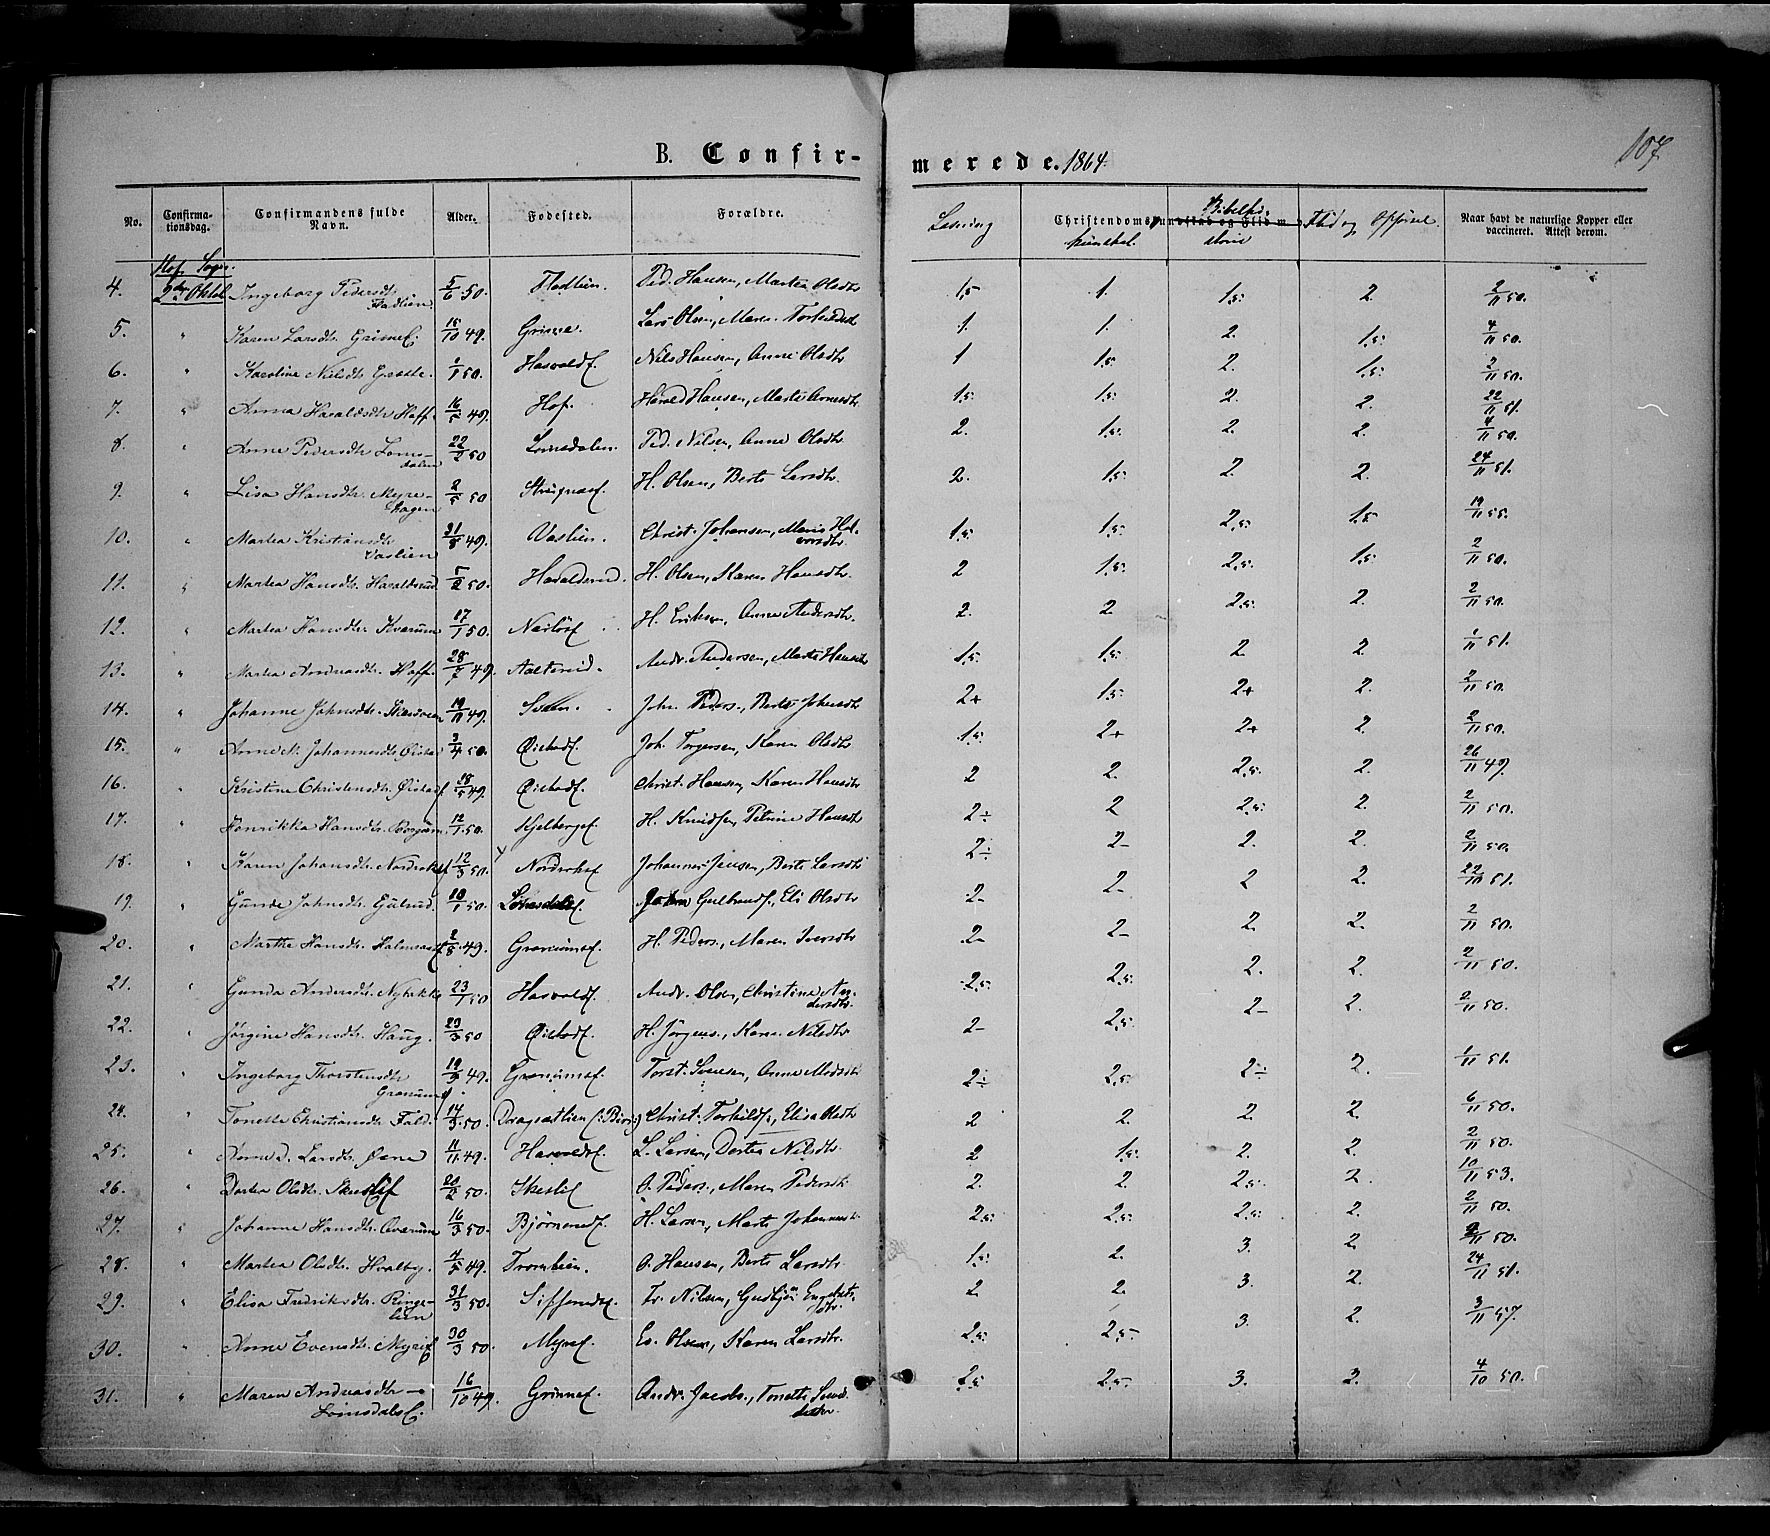 107
B. Confirmerede. 1864.
No. Confirmationsdag. Confirmandens fulde Navn. Alder. Fødested. Forældre. Læsning Christendomskundskab og Flid m Bibelhistorie Flid og Opførsel Naar havt de naturlige Kopper eller vaccineret. Attest derom.
Hof Sogn.
4. 2den Oktob. Ingeborg Pedersdtr. Fladlien 5/6 50. Fladlien. Ped. Hansen, Marthe Olsdtr 1,5 1. 1,5. 2. 2/11 50.
5. " Karen Larsdtr. Grimef. 15/10 49. Grime. Lars Olsen, Maren Torkildsdtr 1. 1. 2. 1,5. 4/11 50.
6. " Karoline Nielsdtr. 1/1 50. Hasvoldf. Niels Hansen, Anne Olsdtr 1 1,5. 2. 1,5. 2/11 50.
7. " Anna Haraldsdtr Hoff. 16/5 49. Hof. Harald Hansen, Marte Arnesdtr 1,5. 1,5. 2. 2. 22/11 51.
8. " Anne Pedersdtr Lomsdalen 22/2 50 Lomsdalen. Ped. Nilsen, Anne Olsdtr 2. 1,5. 2. 2. 4/11 50.
9. " Lisa Hansdtr. Myrehagen 2/5 50 H. Olsen, Berte Larsdtr. 2. 1,5. 2. 2. 24/11 51.
10. " Marthea Kristiansdtr Vaslien 31/8 49. Vaslien. Christ. Johansen, Marie Halvorsdtr 1,5. 1,5. 2,5. 1,5. 19/11 55.
11. " Marthea Hansdtr. Haraldsrud 5/2 50. Haraldsrud. H. Olsen, Karen Hansdtr. 2 1,5. 2,5. 1,5. 2/11 50.
12. " Marthea Hansdtr. Kværum 17/1 50. H. Eriksen, Anne Andersdtr. 2. 2. 2,5. 2. 2/11 50.
13. " Marthea Andreasdtr. Hoff. 28/7 49. Andr. Andersen, Marte Hansdtr 1,5. 1,5. 2 2. 1/11 51.
14. " Johanne Johnsdtr. 19/11 49. Sveen. John Peders., Berte Johnsdtr 2+ 1,5. 2+ 2. 2/11 50.
15. " Anne M. Johannesdtr. Øistad 3/4 50. Øistadf. Joh. Torgersen, Karen Olsdtr 1,5. 2+ 2+ 2. 2/11 50.
16. " Kristine Christensdtr. Øistadf. 18/5 49. Øistadf. Christ. Hansen, Karen Hansdtr 2 2. 2,5. 2. 26/11 49.
17. " Henrikka Hansdtr. 12/1 50. Kjelbergf. H. Knudsen, Petrine Hansdtr 2÷ 2 2,5. 2. 2/11 50.
18. " Karen Johansdtr. Nordrehof 12/3 50. Nordrehof Johannes Jensen, Berte Larsdtr 2÷ 2- 2. 2. 2/11 50.
19. " Gunde Johnsdtr. 10/1 50. Lomsdalsf. Johan Gulbrandf., Eli Olsdtr 2- 2- 2 2. 22/11 51.
20. " Marthe Hansdtr. 2/8 49. Granumsf. H. Peders., Maren Iversdtr 2- 2- 2. 2. 2/11 50.
21. " Gunda Andersdtr. 23/1 50 Hasvoldf. Andr. Olsen, Christine Andersdtr. 2,5. 2,5. 2. 2. 2/11 50.
22. " Jørgine Hansdtr. Haug. 23/3 50 Øistadf. H. Jørgens., Karen Nilsdtr 2- 2,5. 2- 2. 2/11 50.
23. " Ingeborg Thorstensdtr Granumsf. 19/3 49. Granumsf. Torst. Svensen, Anne Madsdtr 2÷ 2,5. 2÷ 2. 1/11 51.
24. " Tonette Christiansdtr. Fald. 14/3 50. Christ. Torkildsf., Elisa Olsdtr 2 2. 2. 2. 6/11 50.
25. " Anne D. Larsdtr. 11/11 49. Hasvoldf. L. Larsen, Dortea Nilsdtr. 2 1,5. 2. 2. 2/11 50.
26. " Dortea Olsdtr. 20/2 50. O. Peders., Maren Pedersdtr. 2. 2. 2,5. 2. 10/11 53.
27. " Johanne Hansdtr. Qværum 16/3 50. Bjørnerudf. H. Larsen, Marte Johannesdtr 2,5. 2,5. 2,5. 2. 2/11 50.
28. " Marthea Olsdtr. Hvalby. 4/5 49. Tromlien. O. Hansen, Berte Larsdtr 1,5. 2. 3. 2. 2/11 50.
29. " Elisa Fredriksdtr. Ringelien 31/3 50. Fr. Nilsen, Gudbjør Engebretsdtr. 2 2. 3. 2. 24/11 51.
30. " Anne Evensdtr. Myrif 30/3 50. Myref. Ev. Olsen, Karen Larsdtr. 2,5. 2,5. 3. 2. 3/11 57.
31. " Maren Andreasdtr Lomsdalsf. 16/10 49. Grimef. Andr. Jacobs., Tonette 2,5 2,5. 3. 2. 4/10 50.